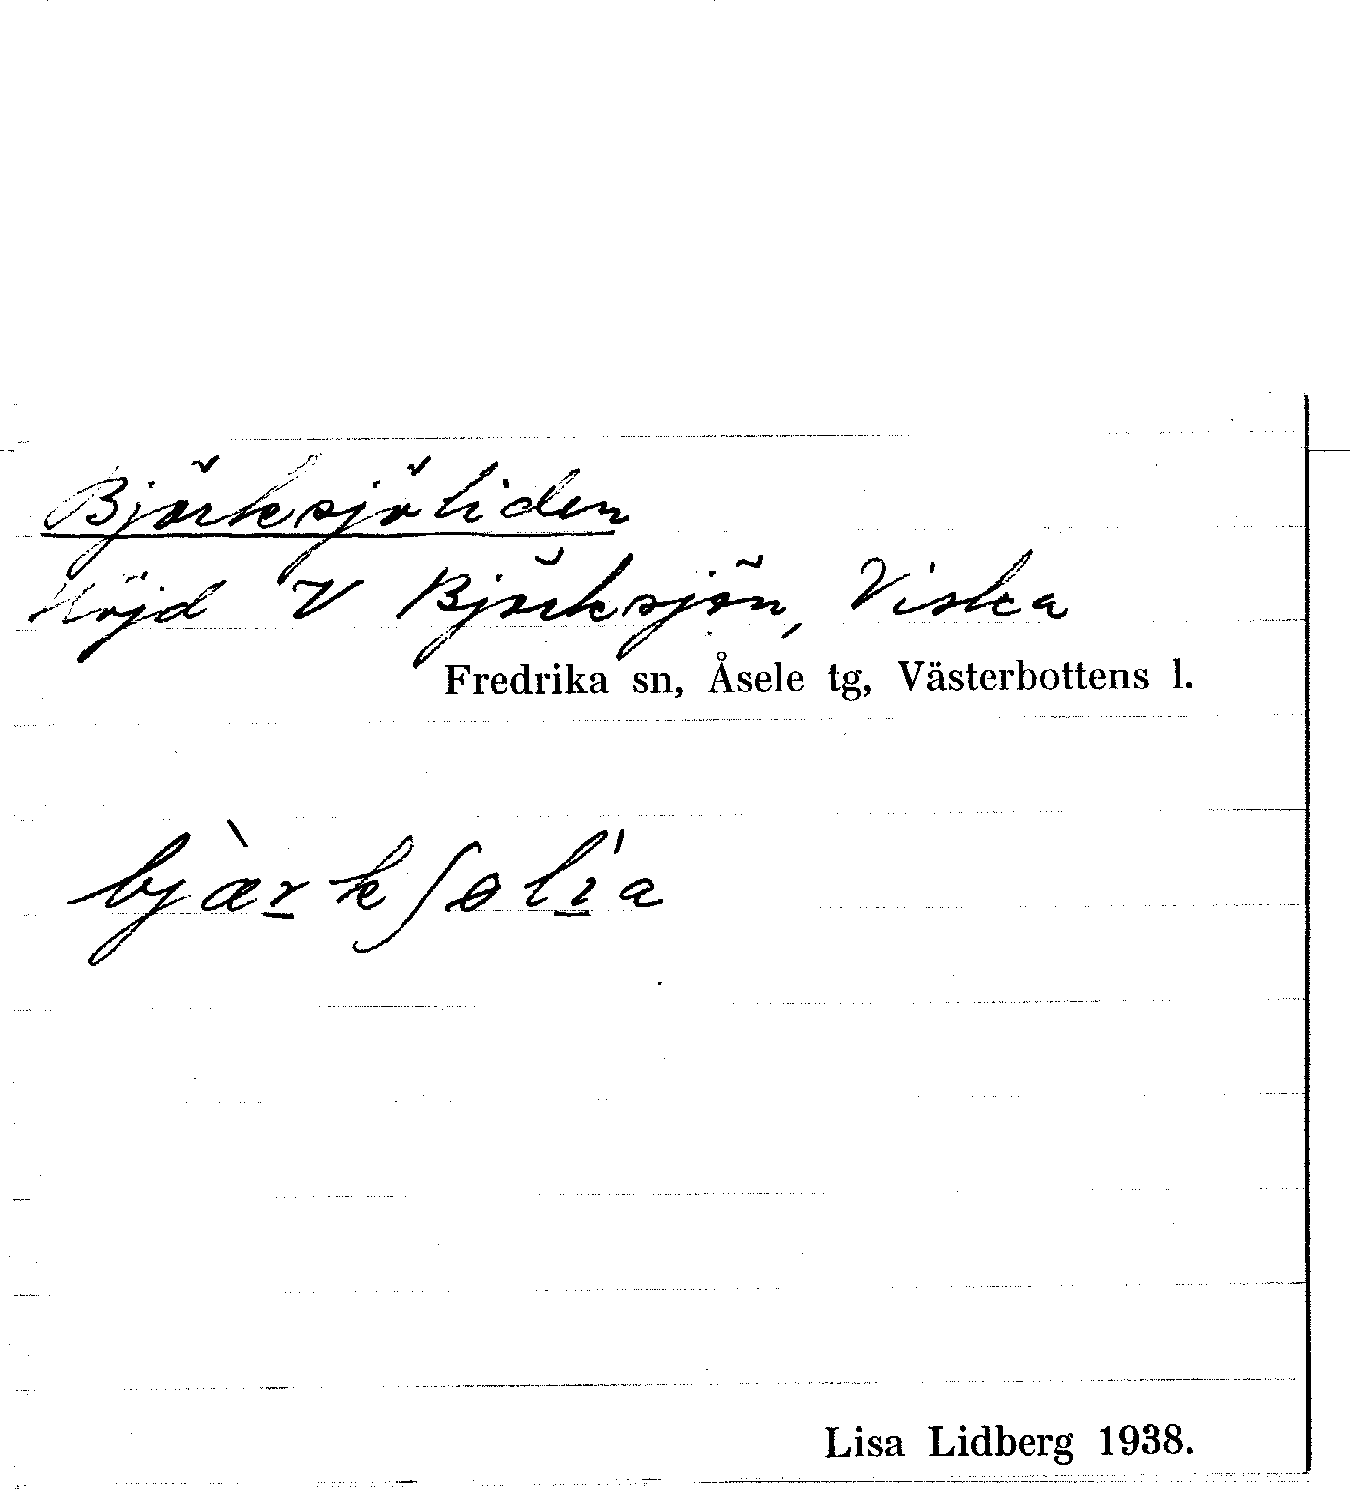 Björksjöliden
Höjd V Björksjön, Viska
Fredrika sn, Åsele tg, Västerbottens l.
bjæ̀r̲kʃølí̲a
Lisa Lidberg 1938.